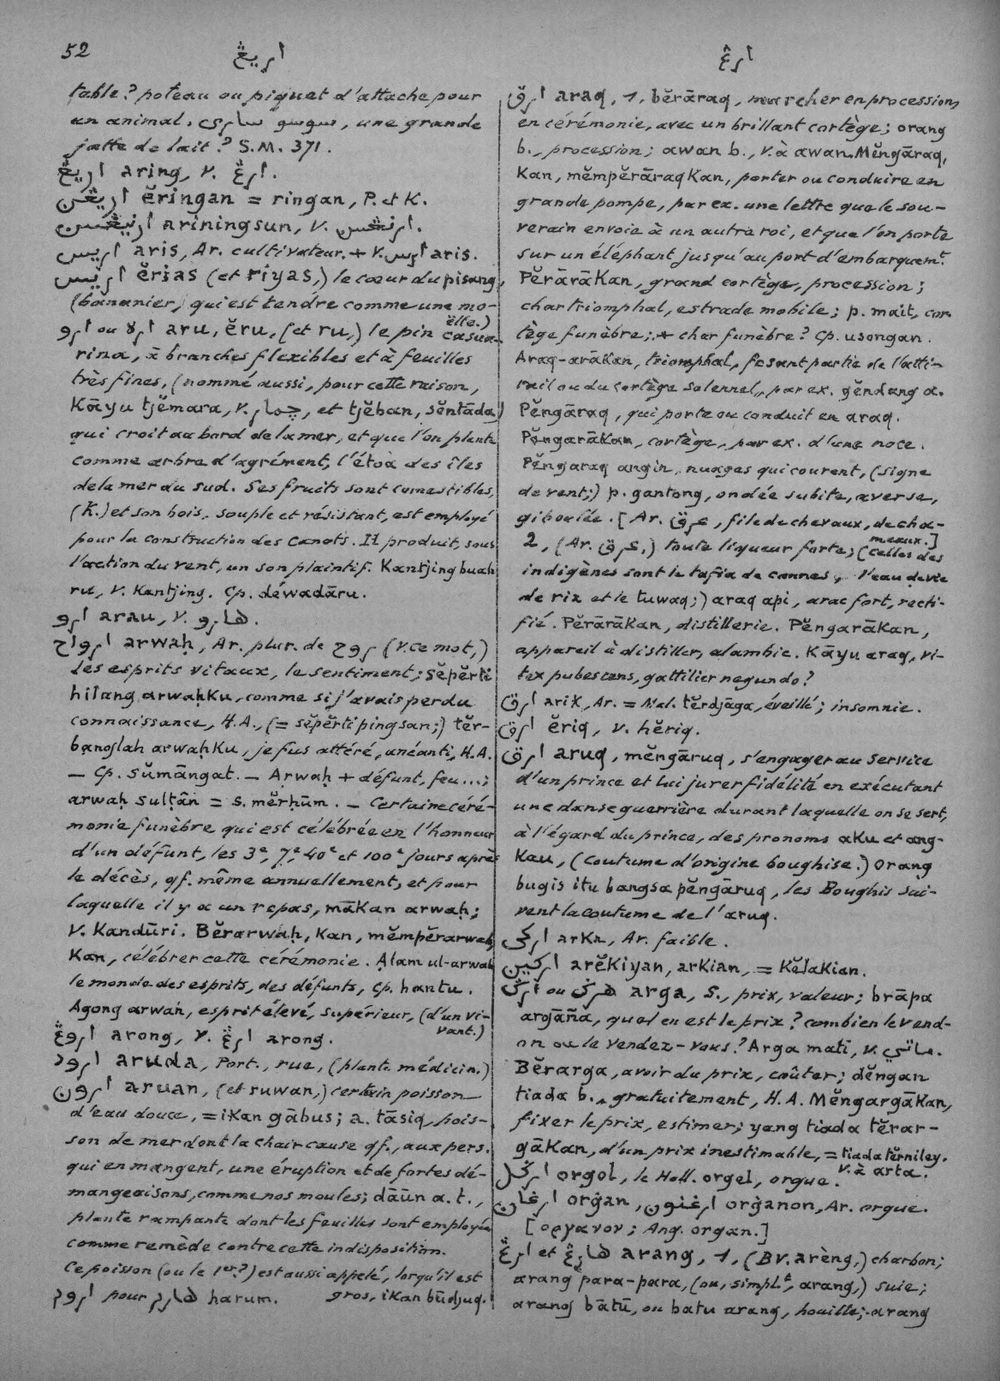 52
اريڠ
ارڠ
table? poteau ou piquet d'attache pour
un animal. سوسو سارى, une grande
jatte de lait? S.M. 371.
اريڠ aring, v. ارڠ.
اريڠن ĕringan = ringan, P. et K.
ارنيڠسن ariningsun, v. ارنڠسن.
اريس aris, Ar. cultivateur. + v. ارس aris.
اريس ĕrias (et riyas,) le cœur du pisang,
(bananier,) qui est tendre comme une mo-
ëlle.)
ارو ou ارﻻ aru, ĕru, (et ru,) le pin casua-
rina, à branches flexibles et à feuilles
très fines, (nommé aussi, pour cette raison,
Kāyu tjĕmara, v. چمار, et tjĕban, sĕntāda,)
qui croit au bord de la mer, et que l'on plante
comme arbre d'agrément, l'étoa des îles
de la mer du sud. Ses fruits sont comestibles,
(K.) et son bois, souple et résistant, est employé
pour la construction des canots. Il produit, sous
l'action du vent, un son plaintif. Kantjing buah
ru, v. Kantjing. Cp. déwadāru.
ارو arau, v. هارو.
ارواح arwaḥ, Ar. plur. de روح (v. ce mot,)
les esprits vitaux, le sentiment; sĕpĕrti
hilang arwaḥku, comme si j'avais perdu
connaissance, H.A., (= sĕpĕrti pingsan;) tĕr-
banglah arwaḥku, je fus attéré, anéanti, H.A.
— Cp. sŭmāngat. — Arwaḥ + défunt, feu...;
arwaḥ sulṭān = s. mĕrḥūm. — Certaine céré-
monie funèbre qui est célébrée en l'honneur
d'un défunt, les 3e, 7e, 40e et 100e jours après
le décès, qf. même annuellement, et pour
laquelle il y a un repas, mākan arwaḥ;
v. Kandūri. Bĕrarwaḥ, kan, mĕmpĕrarwaḥ
Kan, célébrer cette cérémonie. Ạlam ul-arwaḥ
le monde des esprits, des défunts, cp. hantu.
Agong arwaḥ, esprit élevé, supérieur, (d'un vi-
vant.)
اروڠ arong, v. ارڠ arong.
ارود aruda, Port., rue, (plante médicin.)
ارون aruan, (et ruwan,) certain poisson
d'eau douce, = ikan gābus; a. tāsiq, pois-
son de mer dont la chair cause qf., aux pers.
qui en mangent, une éruption et de fortes dé-
mangeaisons, comme nos moules; dāün a. t.,
plante rampante dont les feuilles sont employées
comme remède contre cette indisposition.
Ce poisson (ou le 1er?) est aussi appelé, lorsqu'il est
gros, ikan būdjuq.
اروم pour هارم harum.
ارق araq, 1, bĕrāraq, marcher en procession,
en cérémonie, avec un brillant cortège; orang
b., procession; awan b., v. à awan. Mĕngāraq,
Kan, mĕmpĕrāraqKan, porter ou conduire en
grande pompe, par ex. une lettre que le sou-
verain envoie à un autre roi, et que l'on porte
sur un éléphant jusqu'au port d'embarquemt.
Pĕrārākan, grand cortège, procession;
char triomphal, estrade mobile; p. mait, cor-
tège funèbre; + char funèbre? Cp. usongan.
Araq-arākan, triomphal, fesant partie de l'atti-
rail ou du cortège solennel, par ex. gĕndang a.
Pĕngāraq, qui porte ou conduit en araq.
Pĕngarākan, cortège, par ex. d'une noce.
Pĕngaraq angin, nuages qui courent, (signe
de vent;) p. gantong, ondée subite, averse,
giboulée. [Ar. عرق, file de chevaux, de cha-
meaux.]
2, (Ar. عرق,) toute liqueur forte; (celles des
indigènes sont le tafia de cannes, l'eau de vie
de riz et le tuwaq;) araq api, arac fort, recti-
fié. Pĕrārākan, distillerie. Pĕngarākan,
appareil à distiller, alambic. Kāyu araq, vi-
tex pubescens, gattilier negundo?
ارق arik, Ar. = Mal. tĕrdjāga, éveillé; insomnie.
ارق ĕriq, v. hĕriq.
ارق aruq, mĕngāruq, s'engager au service
d'un prince et lui jurer fidélité en exécutant
une danse guerrière durant laquelle on se sert,
à l'égard du prince, des pronoms aku et ang-
Kau, (coutume d'origine boughise.) Orang
bugis itu bangsa pĕngāruq, les Boughis sui-
vent la coutume de l'aruq.
اركى arKa, Ar. faible.
اركين arĕkiyan, arkian, = kĕlakian.
ارݢ ou هرݢ arga, S., prix, valeur; brāpa
argāña, quel en est le prix? combien le vend-
on ou le vendez-vous? Arga mati, v. ماتي.
Bĕrarga, avoir du prix, coûter; dĕngan
tiada b., gratuitement, H.A. Mĕngargākan,
fixer le prix, estimer; yang tiada tĕrar-
gākan, d'un prix inestimable, = tiada tĕrniley.
v. à arta.
ارݢل orgol, le Holl. orgel, orgue.
ارغان orġan, ارغنون orġanon, Ar. orgue.
[οργανον; Ang. organ.]
ارڠ et هارڠ arang, 1, (Bv. arèng,) charbon;
arang para-para, (ou, simplt, arang,) suie;
arang bātū, ou batu arang, houille; arang